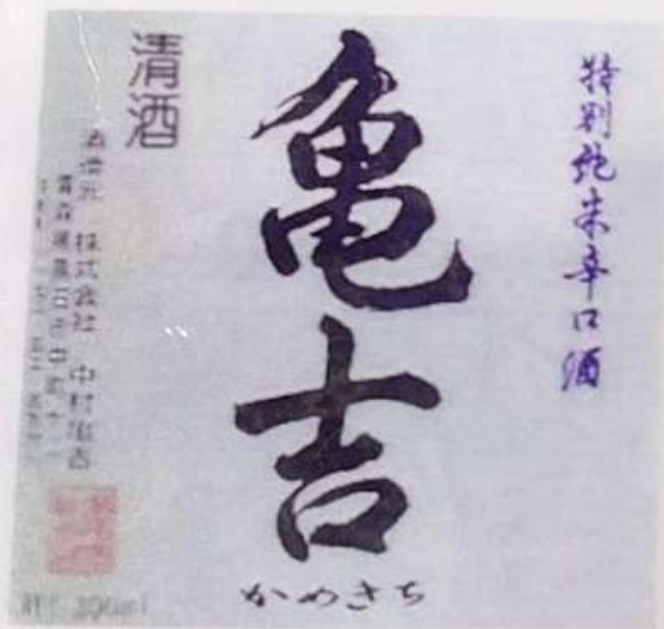 特別純米辛口酒
亀吉
かめきち
清酒
酒造元 株式会社 中村亀吉
青森県黒石市中町十二
300ml